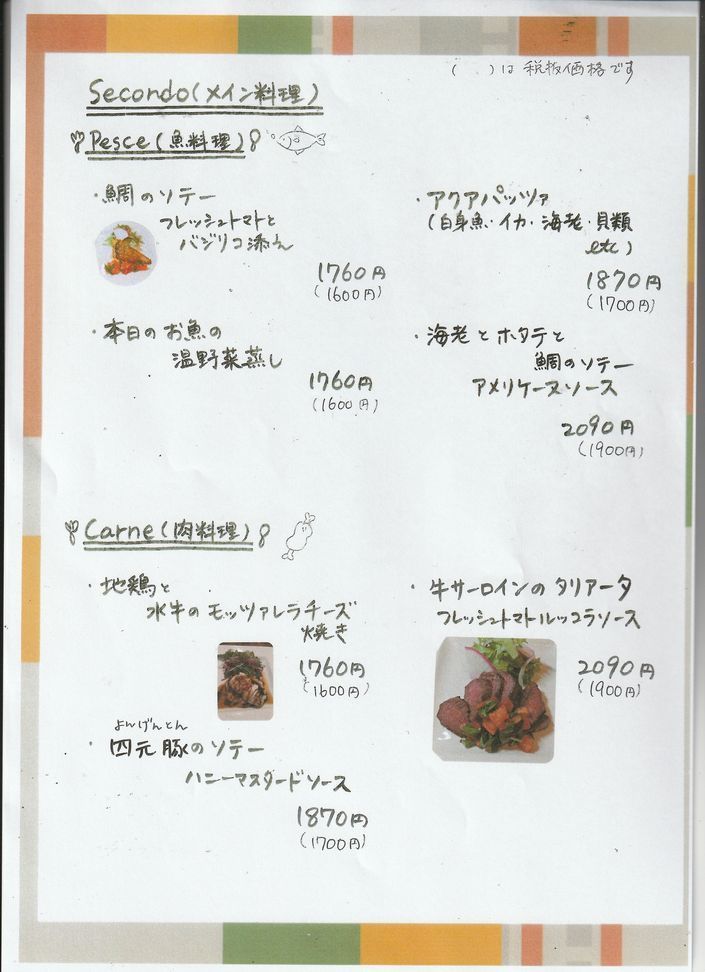 ( )は税抜価格です
Secondo(メイン料理)
Pesce(魚料理)
・鯛のソテー
フレッシュトマトと
バジリコ添え
1760円
(1600円)
・アクアパッツァ
(白身魚・イカ・海老・貝類
etc)
1870円
(1700円)
・本日のお魚の
温野菜蒸し
1760円
(1600円)
・海老とホタテと
鯛のソテー
アメリケーヌソース
2090円
(1900円)
Carne(肉料理)
・地鶏と
水牛のモッツァレラチーズ
焼き
1760円
(1600円)
・牛サーロインのタリアータ
フレッシュトマトルッコラソース
2090円
(1900円)
よんげんとん
・四元豚のソテー
ハニーマスタードソース
1870円
(1700円)